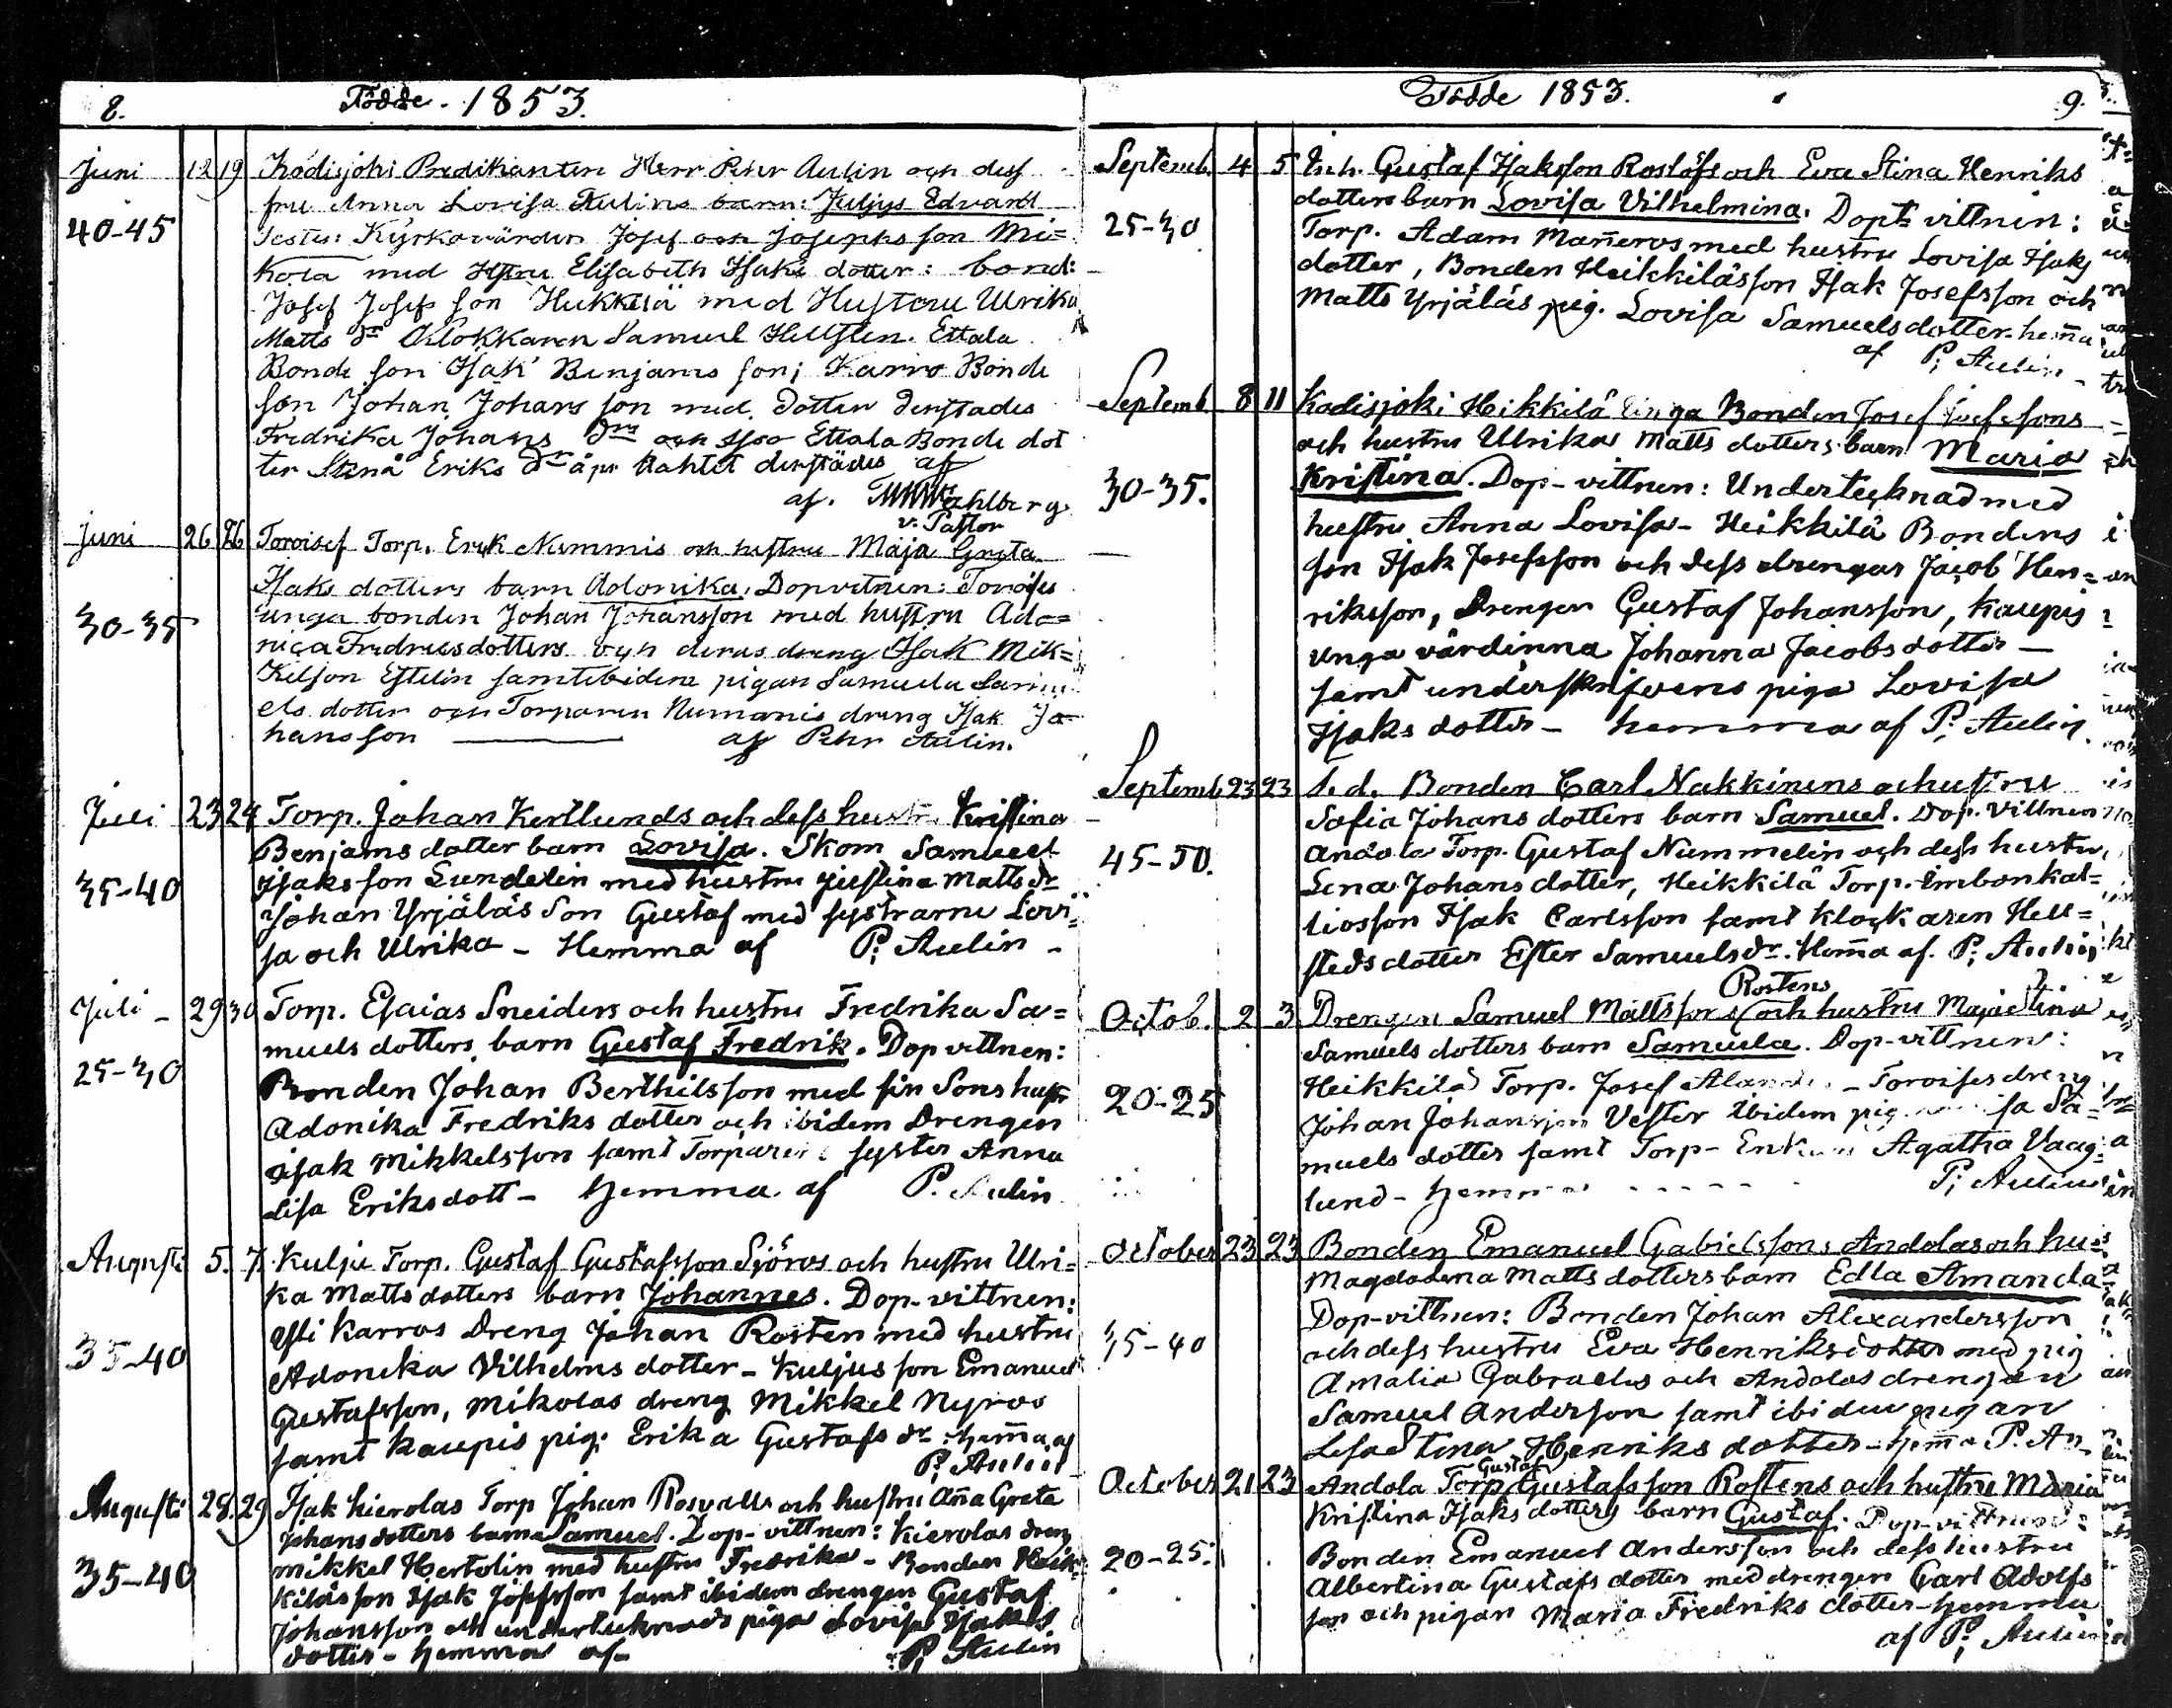 8. Födde. 1853.
Juni 12 19 Kodisjoki Predikanten Herr Pehr Aulin och dess
fru Anna Lovisa Aulins barn: Juljus Edvard
40-45 Testes: Kyrkovärden Josef och Josephs son Mi=
kola med Hstru Elisabeth Isaks dotter: bond:
Josef Josefs son Heikkilä med Hustru Ulrika
Matts dr Klokkaren Samuel Hellsten. Ettala
Bonde son Isak Benjams son; Karro Bonde
son Johan Johans son med dotter derstädes
Fredrika Johans dr och Ettala Bonde dot
ter Stina Eriks dr derstädes af
af. Wahlberg
v. Pastor
Juni 26 26 Torp. Erik Nummis och hustru Maja Greta
Isaks dotters barn Adonika. Dopvitnen:
30-35 unga bonden Johan Johansson med hustru Ado=
nica Fredriksdotters och deras dreng Isak Mik=
kelson samt ibidem pigan Samuela Samu
els dotter och Torparen Numanis dreng Isak Jo
hansson af Pehr Aulin.
Juli 23 24 Torp. Johan Kertlunds och dess hustr. Kristina
Benjamsdotter barn Lovisa. Skom Samuel
35-40 Isaksson Lundelin med hustru Justina Matts dr
Johan Yrjäläs Son Gustaf med systrarne Lovi=
sa och Ulrika - Hemma af P. Aulin -
Juli - 29 30 Torp. Esaias Sneiders och hustru Fredrika Sa=
muels dotters barn Gustaf Fredrik. Dop vittnen:
25-30 Bonden Johan Berthilsson med sin Sons hustr
Adonika Fredriks dotter och ibidem Drengen
Isak Mikkelsson samt Torparens syster Anna
Lisa Eriksdott - hemma af P. Aulin
Augusti 5. 7. Kulju Torp. Gustaf Gustafsson Sjöros och hustru Ulri=
ka Mattsdotters barn Johannes. Dop-vittnen:
35-40 Karros Dreng Johan Rosten med hustru
Adonika Vilhelms dotter - Kuljus son Emanuel
Gustafsson, Mikolas dreng Mikkel Nyros
samt Kaupis pig. Erika Gustafs dr. hem̄a af
P. Aulin
Augusti 28. 29 Isak Kierolas Torp Johan Rosvalls och hustru An̄a Greta
Johansdotters barn Samuel. Dop-vittnen: Kierolas dreng
35-40 Mikkel Hertelin med hustru Fredrika - Bonden Heik=
kiläs son Isak Josefsson samt ibidem drengen Gustaf
Johansson och undertecknads piga Lovisa Isaks
dotter - hemma af - P. Aulin
Födde 1853. 9.
Septemb. 4 5 Inh. Gustaf Isaksson Roslöfs och Eva Stina Henriks
dotters barn Lovisa Vilhelmina. Dopts vittnen:
25-30 Torp. Adam Man̄eros med hustru Lovisa Isaks
dotter, Bonden Heikkiläs son Isak Josefsson och
Matts Yrjäläs pig. Lovisa Samuelsdotter - hem̄a
af P. Aulin -
Septemb. 8 11 Kodisjoki Heikkilä unga Bonden Josef Josefssons
och hustru Ulrika Matts dotters barn Maria
30-35. Kristina. Dop-vittnen: Undertecknad med
hustru Anna Lovisa - Heikkilä Bondens
son Isak Josefsson och dess drengar Jacob Hen=
riksson, Drengen Gustaf Johansson, Kaupis
unga värdinna Johanna Jacobs dotter -
samt underskrifvens piga Lovisa
Isaks dotter - hemma af P. Aulin
Septemb 23 23 S. d. Bonden Carl Nakkinens o hustru
Sofia Johans dotters barn Samuel. Dop. Vittnen
45-50. Andola Torp. Gustaf Nummelin och dess hustru
Lena Johans dotter, Heikkilä Torp. Imbonkal=
liosson Isak Carlsson samt klockaren Hell=
steds dotter Ester Samuels dr. Hem̄a af. P. Aulin
Octob. 2 3 Drengen Samuel Mattsson Rostens och hustru Maja Stina
Samuels dotters barn Samuela. Dop-vittnen:
20-25 Heikkilä Torp. Josef - Toroises dreng
Johan Johansson Vester ibidem pig. Sa=
muels dotter samt Torp- Agatha Vaag=
lund - hemma P. Aulin
October 23 23 Bonden Emanuel Gabrielssons Andolas och hu
Magdalena Matts dotters barn Edla Amanda
Dop-vittnen: Bonden Johan Alexandersson
35-40 och dess hustru Eva Henriksdotter med pig
Amalia Gabriels och Andolas drengen
Samuel Anderson samt ibidem pigan
Lisa Stina Henriks dotter - hem̄a P. Au
October 21 23 Andola Torp. Gustaf Gustafsson Rostens och hustru Maria
Kristina Isaks dotters barn Gustaf. Dop-vittnen:
20-25. Bonden Emanuel Andersson och dess hustru
Albertina Gustafs dotter med drengen Carl Adolfs
son och pigan Maria Fredriks dotter - hemma
af P. Aulin